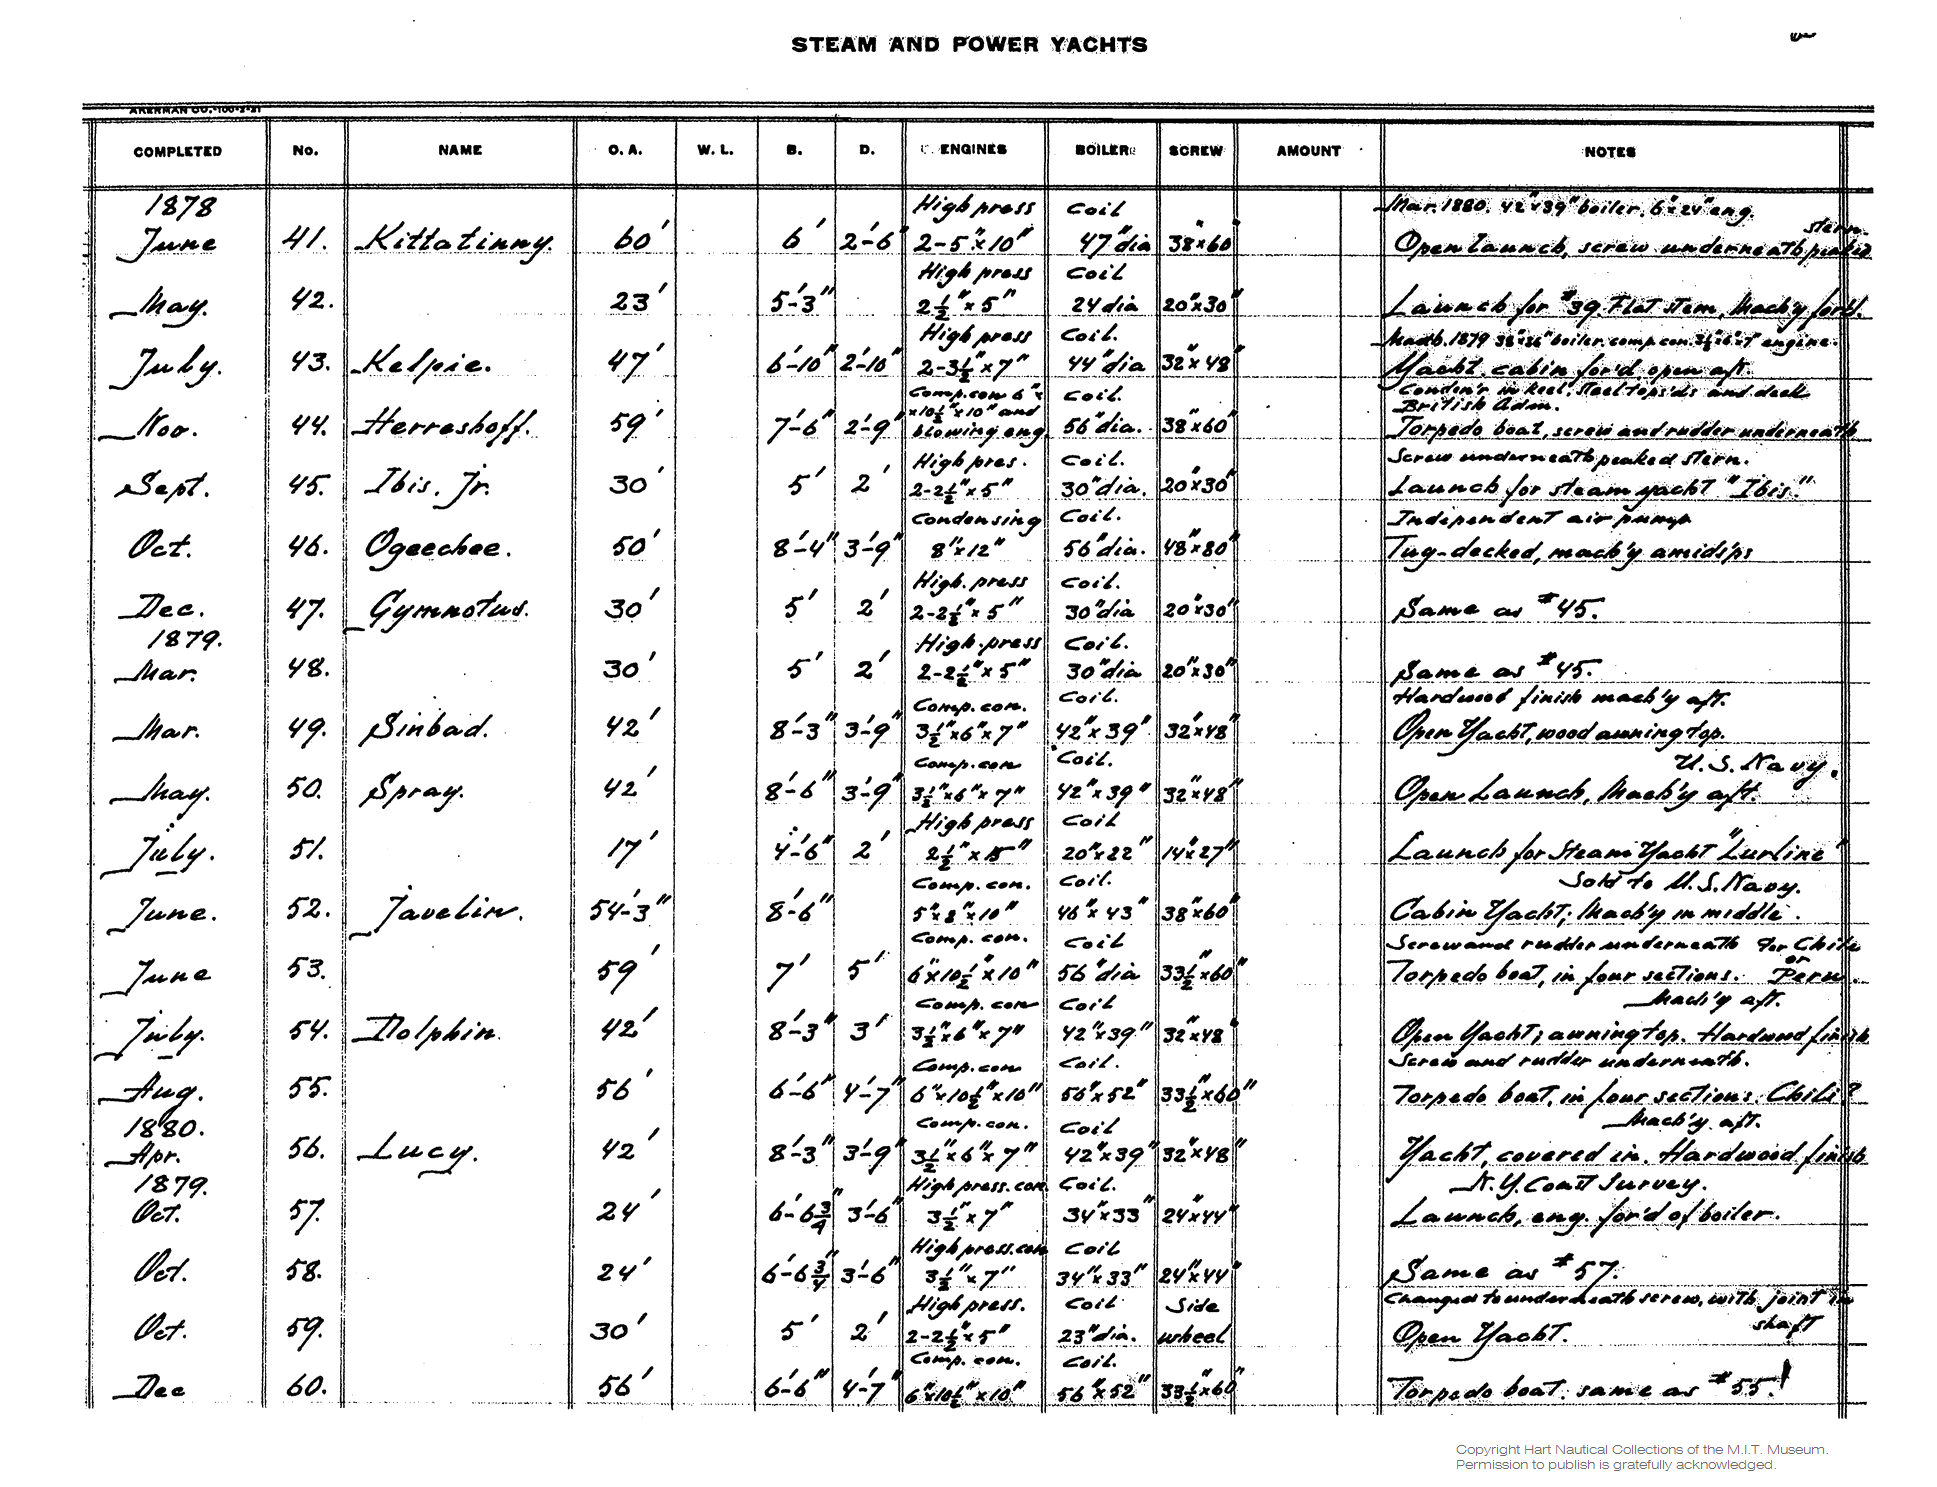 STEAM AND POWER YACHTS
AKERMAN CO.-100-2-21
COMPLETED No. NAME O. A. W. L. B. D. ENGINES BOILER SCREW AMOUNT NOTES
1878 High press Coil Mar. 1880. 42"x39" boiler, 6"x24" eng.
stern.
June 41. Kittatinny. 60' 6' 2'-6" 2-5"x10" 47"dia 38"x60" Open Launch, screw underneath peaked
High press Coil
May. 42. 23' 5'-3" 2½"x5" 24 dia 20"x30" Launch for #39. Flat stem, Mach'y for'd.
High press Coil. March. 1879 38"x36" boiler. comp con. 3½"x6"x7" engine.
July. 43. Kelpie. 47' 6'-10" 2'-10" 2-3½"x7" 44"dia 32"x48" Yacht. cabin for'd open aft.
Comp. con 6"x Coil. Conden'r in keel. Steel tops'ds and deck
x10½"x10" and British Adm.
Nov. 44. Herreshoff. 59' 7'-6" 2'-9" blowing eng. 56"dia. 38"x60" Torpedo boat, screw and rudder underneath
High pres. Coil. Screw underneath peaked stern.
Sept. 45. Ibis. Jr. 30' 5' 2' 2-2½"x5" 30"dia. 20"x30" Launch for steam yacht "Ibis."
Condensing Coil. Independent air pump
Oct. 46. Ogeechee. 50' 8'-4" 3'-9" 8"x12" 56"dia. 48"x80" Tug-decked, mach'y amids'ps
High. press Coil.
Dec. 47. Gymnotus. 30' 5' 2' 2-2½"x5" 30"dia 20"x30" Same as #45.
1879. High. press Coil.
Mar. 48. 30' 5' 2' 2-2½"x5" 30"dia 20"x30" Same as #45.
Comp. con. Coil. Hardwood finish mach'y aft.
Mar. 49. Sinbad. 42' 8'-3" 3'-9" 3½"x6"x7" 42"x39" 32"x48" Open Yacht, wood awning top.
Comp. con Coil. U. S. Navy.
May. 50. Spray. 42' 8'-6" 3'-9" 3½"x6"x7" 42"x39" 32"x48" Open Launch, Mach'y aft.
High press Coil
July. 51. 17' 4'-6" 2' 2½"x 20"x22" 14"x27" Launch for Steam Yacht "Lurline"
Comp. con. Coil. Sold to U. S. Navy.
June. 52. Javelin. 54-3" 8'-6" 5"x8"x10" 46"x43" 38"x60" Cabin Yacht; Mach'y in middle.
Comp. con. Coil Screw and rudder underneath For Chile
or
June 53. 59' 7' 5' 6"x10½"x10" 56"dia 33½"x60" Torpedo boat, in four sections. Peru.
Comp. con Coil Mach'y aft.
July. 54. Dolphin. 42' 8'-3" 3' 3½"x6"x7" 42"x39" 32"x48" Open Yacht; awning top. Hardwood finish
Comp. con Coil. Screw and rudder underneath.
Aug. 55. 56' 6'-6" 4'-7" 6"x10½"x10" 56"x52" 33½"x60" Torpedo boat, in four sections. Chili?
1880. Comp. con. Coil Mach'y aft.
Apr. 56. Lucy. 42' 8'-3" 3'-9" 3½"x6"x7" 42"x39" 32"x48" Yacht, covered in. Hardwood finish
1879. High press. con. Coil. N. Y. Coast Survey.
Oct. 57. 24' 6'-6¾" 3'-6" 3½"x7" 34"x33" 24"x44" Launch, eng. for'd of boiler.
High press. con Coil
Oct. 58. 24' 6'-6¾" 3'-6" 3½"x7" 34"x33" 24"x44" Same as #57.
High press. Coil Side Changed to underneath screw, with joint in
shaft
Oct. 59. 30' 5' 2' 2-2½"x5" 23"dia. wheel Open Yacht.
Comp. con. Coil.
Dec 60. 56' 6'-6" 4'-7" 6"x10½"x10" 56"x52" 33½"x60" Torpedo boat. same as #55.
Copyright Hart Nautical Collections of the M.I.T. Museum.
Permission to publish is gratefully acknowledged.